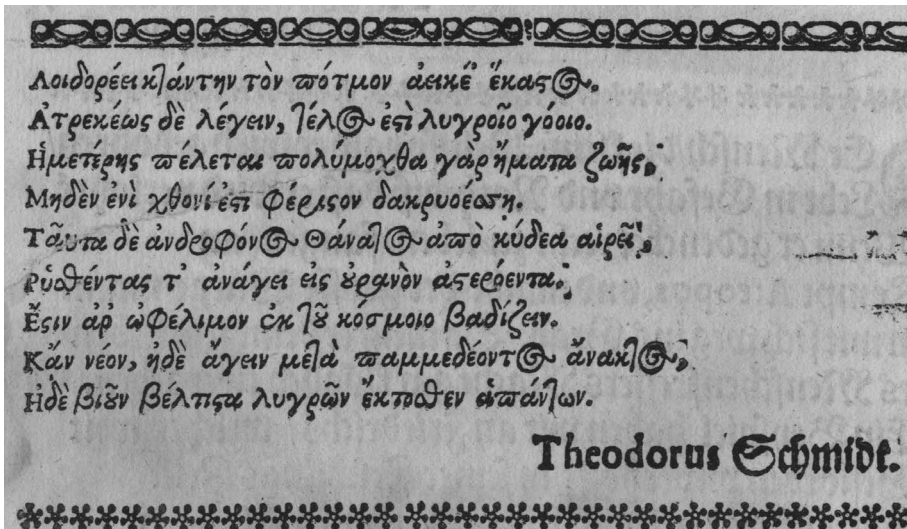 Λοιδορέει κ̀ ἄντην τὸν πότμον ἀεικέ' ἕκαστος.
Ἀτρεκέως δὲ λέγειν, τέλος ἐστὶ λυγροῖο γόοιο.
Ἡμετέρης πέλεται πολύμοχθα γὰρ ἤματα ζωῆς,
Μηδὲν ἐνὶ χθονί ἐστι φέριστον δακρυοέσση.
Ταῦτα δὲ ἀνδροφόνος Θάνατος ἀπὸ κύδεα αἱρεῖ,
Ρυσθέντας τ' ἀνάγει εἰς οὐρανὸν ἀστερόεντα.
Ἔστιν ἀρ ὠφέλιμον ἐκ τοῦ κόσμοιο βαδίζειν.
Κἂν νέον, ἠδὲ ἄγειν μετὰ παμμεδέοντος ἄνακτος,
Ἠδὲ βιοῦν βέλτιστα λυγρῶν ἔκτοθεν ἁπάντων.
Theodorus Schmidt.